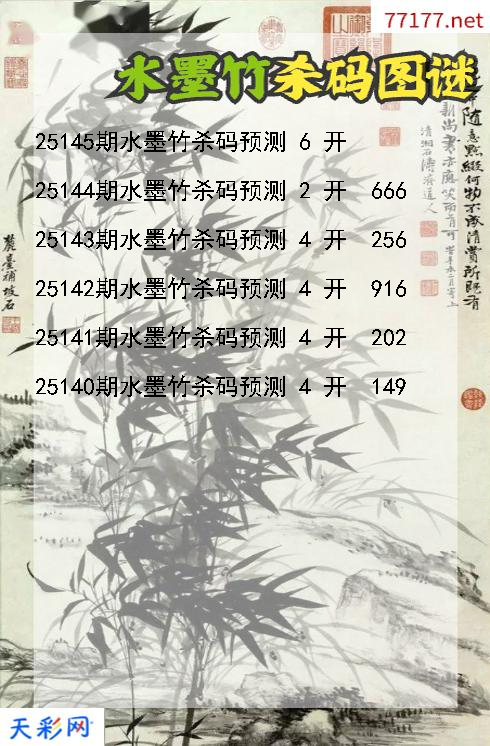 77177.net
水墨竹杀码图谜
25145期水墨竹杀码预测 6 开
25144期水墨竹杀码预测 2 开 666
25143期水墨竹杀码预测 4 开 256
25142期水墨竹杀码预测 4 开 916
25141期水墨竹杀码预测 4 开 202
25140期水墨竹杀码预测 4 开 149
随意點綴何物不成清賞所既有
清湘石濤濟道人
天彩网